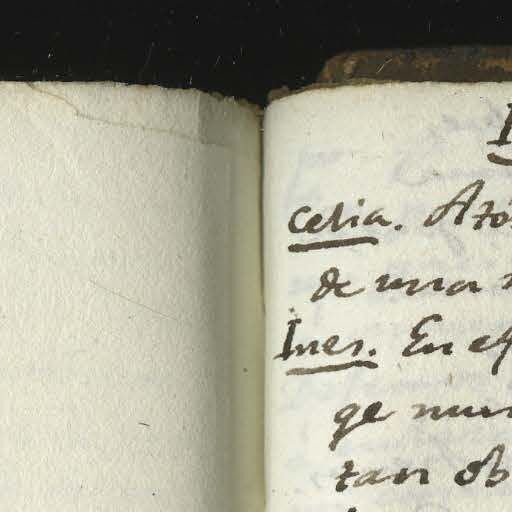 Celia. Ató
de una
Ines. En es
ge nun
tan ob